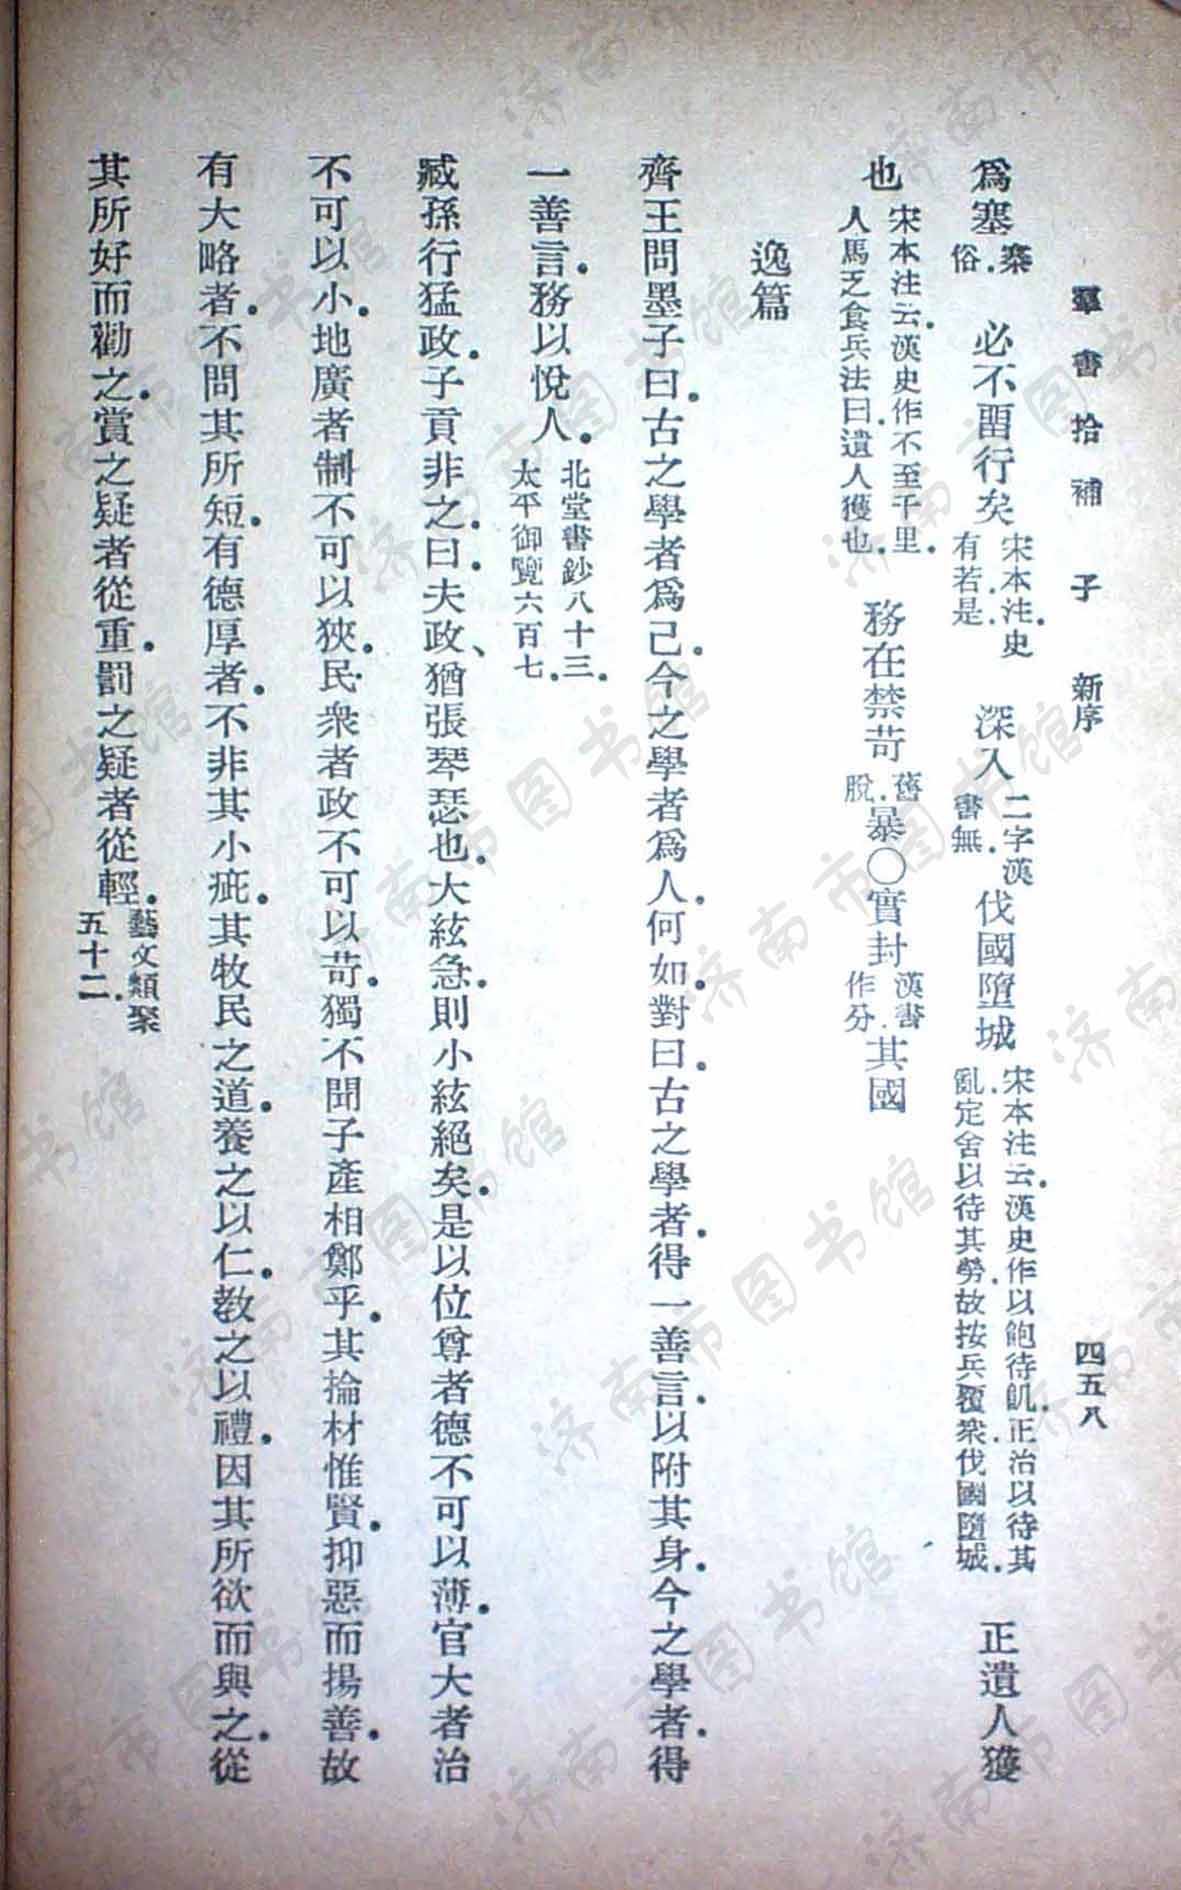 羣書拾補　子　新序　四五八
爲塞俗．寨　必不畱行矣宋本注．史有．若是．　深入二字漢書無．伐國墮城宋本注云．漢史作以飽待飢．正治以待其亂．定舍以待其勞．故按兵覆衆．伐國墮城．　正遺人獲
也宋本注云．漢史作不至千里．人馬乏食兵法曰．遺人獲也．　務在禁苛舊脫．暴〇實封漢書作分．其國
逸篇
齊王問墨子曰．古之學者爲己．今之學者爲人．何如．對曰．古之學者．得一善言．以附其身．今之學者．得
一善言．務以悅人．北堂書鈔八十三．太平御覽六百七．
臧孫行猛政．子貢非之．曰．夫政、猶張琴瑟也．大絃急．則小絃絕矣．是以位尊者德不可以薄．官大者治
不可以小．地廣者制不可以狹．民衆者政不可以苛．獨不聞子產相鄭乎．其掄材惟賢．抑惡而揚善．故
有大略者．不問其所短．有德厚者．不非其小疵．其牧民之道．養之以仁．教之以禮．因其所欲而與之．從
其所好而勸之．賞之疑者從重．罰之疑者從輕．藝文類聚五十二．
济南市图书馆